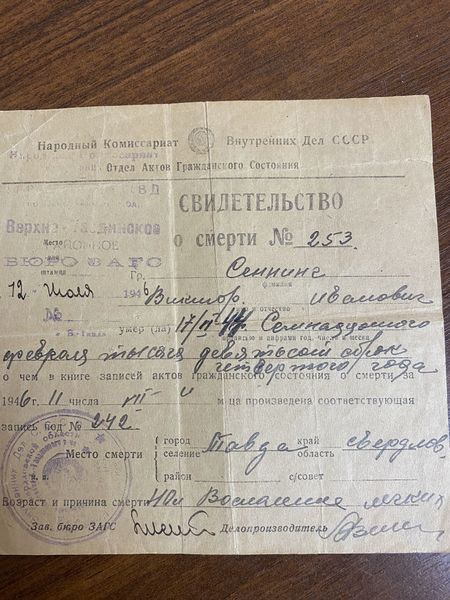 Народный Комиссариат Внутренних Дел СССР
Отдел Актов Гражданского Состояния
СВИДЕТЕЛЬСТВО
Верхне-Тавдинское
о смерти № 253
Место
для
штампа
БЮРО ЗАГС
Гр. Сеннинг
фамилия
12 Июля 1946
Виктор Иванович
и отчество
умер (ла) 17/II-44 Семнадцатого
прописью и цифрами год, число и месяц
февраля тысяча девятьсот сорок
четвертого года
о чем в книге записей актов гражданского состояния о смерти за
1946 г. 11 числа VII м-ца произведена соответствующая
запись под № 242
Место смерти: город селение Тавда край область Свердлов.
район с/совет
Возраст и причина смерти 40 л Воспаление легких
Зав. бюро ЗАГС Делопроизводитель